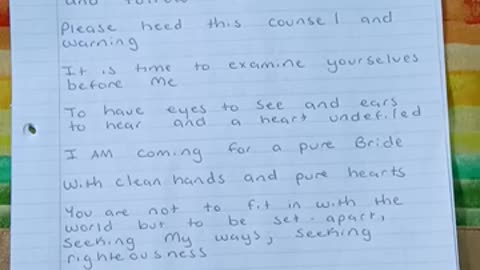 and follow
Please heed this counsel and
warning
It is time to examine yourselves
before me
To have eyes to see and ears
to hear and a heart undefiled
I AM coming for a pure Bride
With clean hands and pure hearts
You are not to fit in with the
world but to be set-apart,
seeking my ways, seeking
righteousness